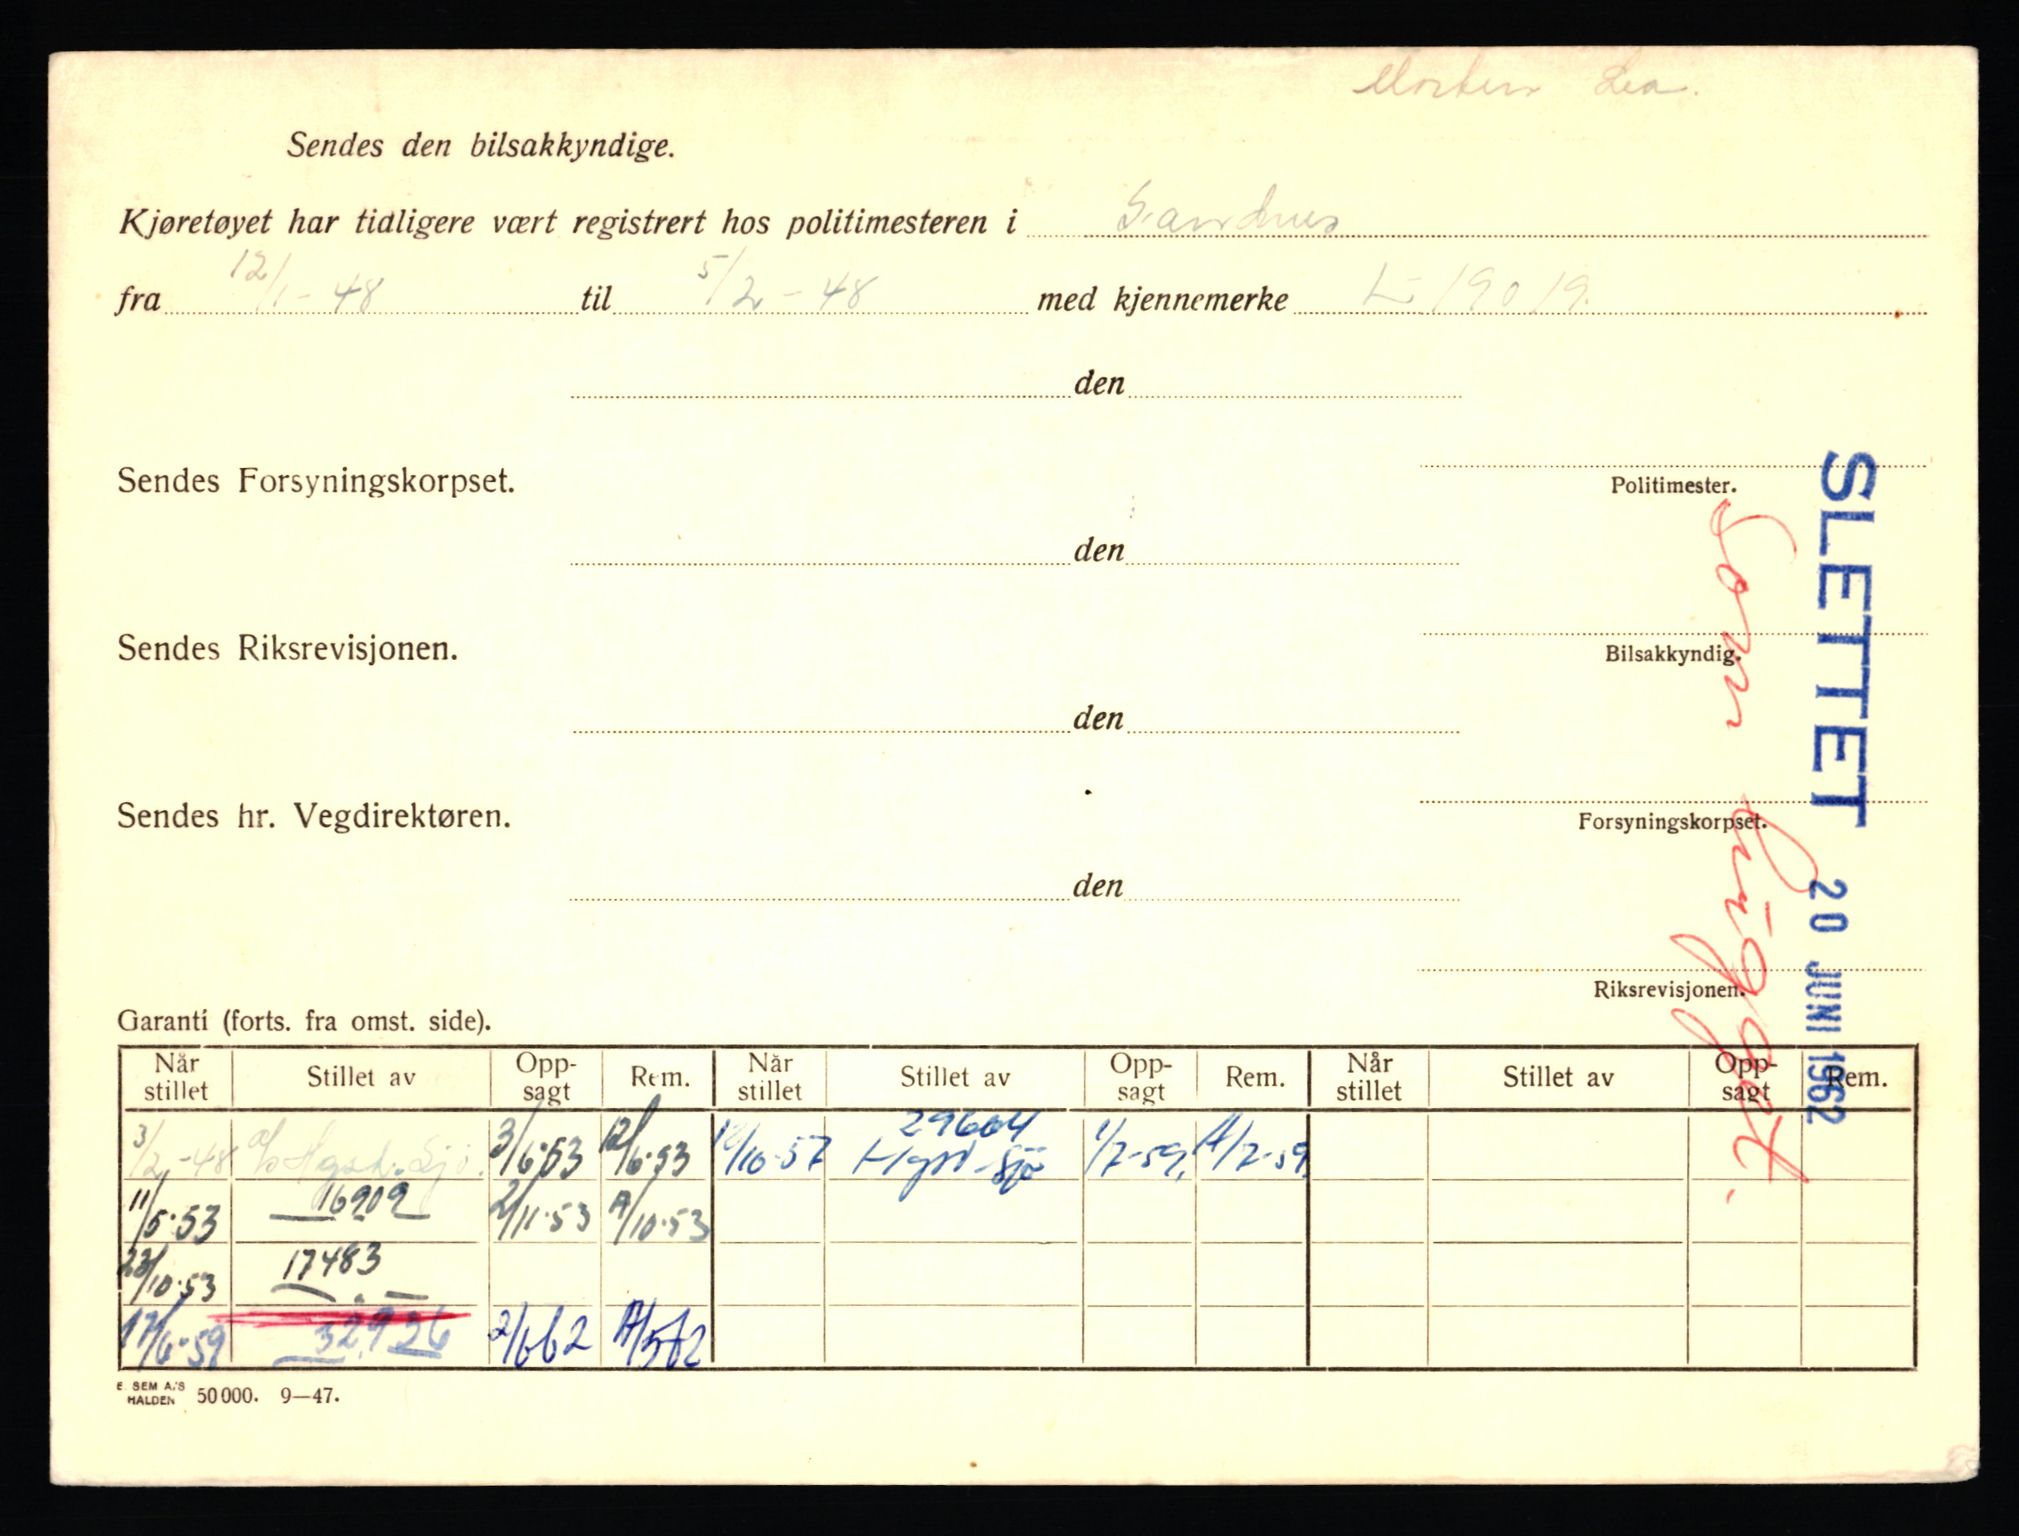 Morten Lea.
Sendes den bilsakkyndige.
Kjøretøyet har tidligere vært registrert hos politimesteren i Sandnes
fra 12/1-48 til 5/2-48 med kjennemerke L-19019.
den
Sendes Forsyningskorpset.
Politimester.
den
Sendes Riksrevisjonen.
Bilsakkyndig.
den
Sendes hr. Vegdirektøren.
Forsyningskorpset.
den
Riksrevisjonen.
SLETTET 20 JUNI 1962
Som hugget.
Garanti (forts. fra omst. side).
Når stillet Stillet av Opp-sagt Rem. Når stillet Stillet av Opp-sagt Rem. Når stillet Stillet av Opp-sagt Rem.
3/2-48 3/6-53 12/6-53 12/10-57 29604 1/7-59. A/7-59.
11/5-53 16909 2/11-53 A/10-53
23/10-53 17483
17/6-59 32936 2/662 A/562
E. SEM A.'S
HALDEN 50 000. 9—47.